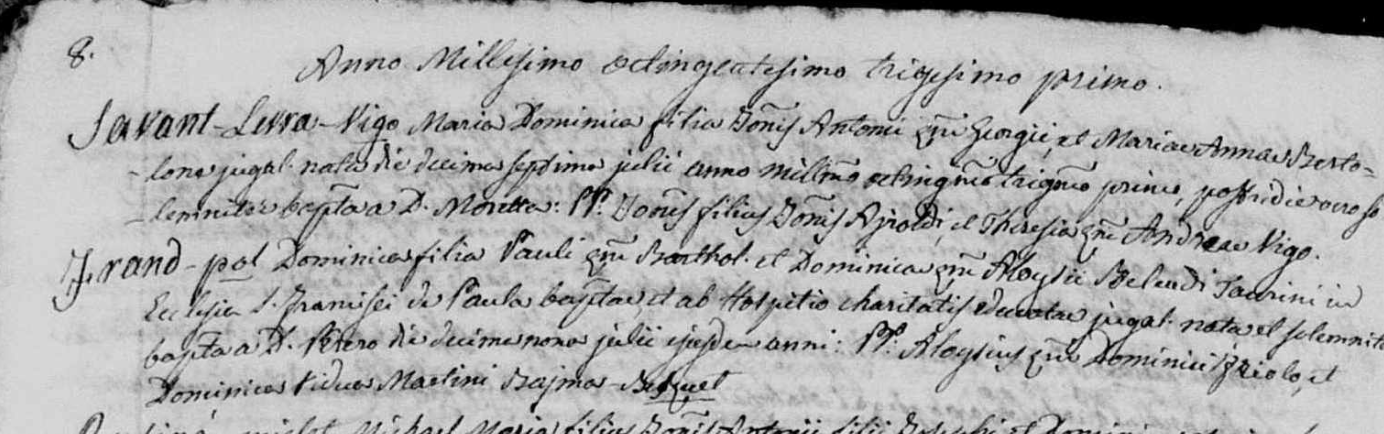 8.
Anno Millesimo octingentesimo trigesimo primo.
Savant-Levra-Vigo Maria Dominica filia Jõnis Antonii qm̃ Georgii, et Mariae Annae Berto-
-lone jugal. nata die decima septima julii anno millm̃o octingm̃o trigm̃o primo, postridie vero so
-lemniter bapt̃a a D. Moretta: PP. Joñes filius Jõnis Ajroldi, et Theresia qm̃ Andreae Vigo.
Grand-pol Dominica filia Pauli qm̃ Barthol. et Dominica qm̃ Aloysii Belandi Taurini in
Ecclesia S. Francisci de Paula bapt̃ae, et ab Hospitio charitatis eductae jugal. nata et solemnite
bapt̃a a D. Vetero die decima nona julii ejusdem anni: PP. Aloysius qm̃ Dominici Friolo, et
Dominica vidua Martini Bajma-
Michael Maria filius Jõnis Antonii filii Josephi et